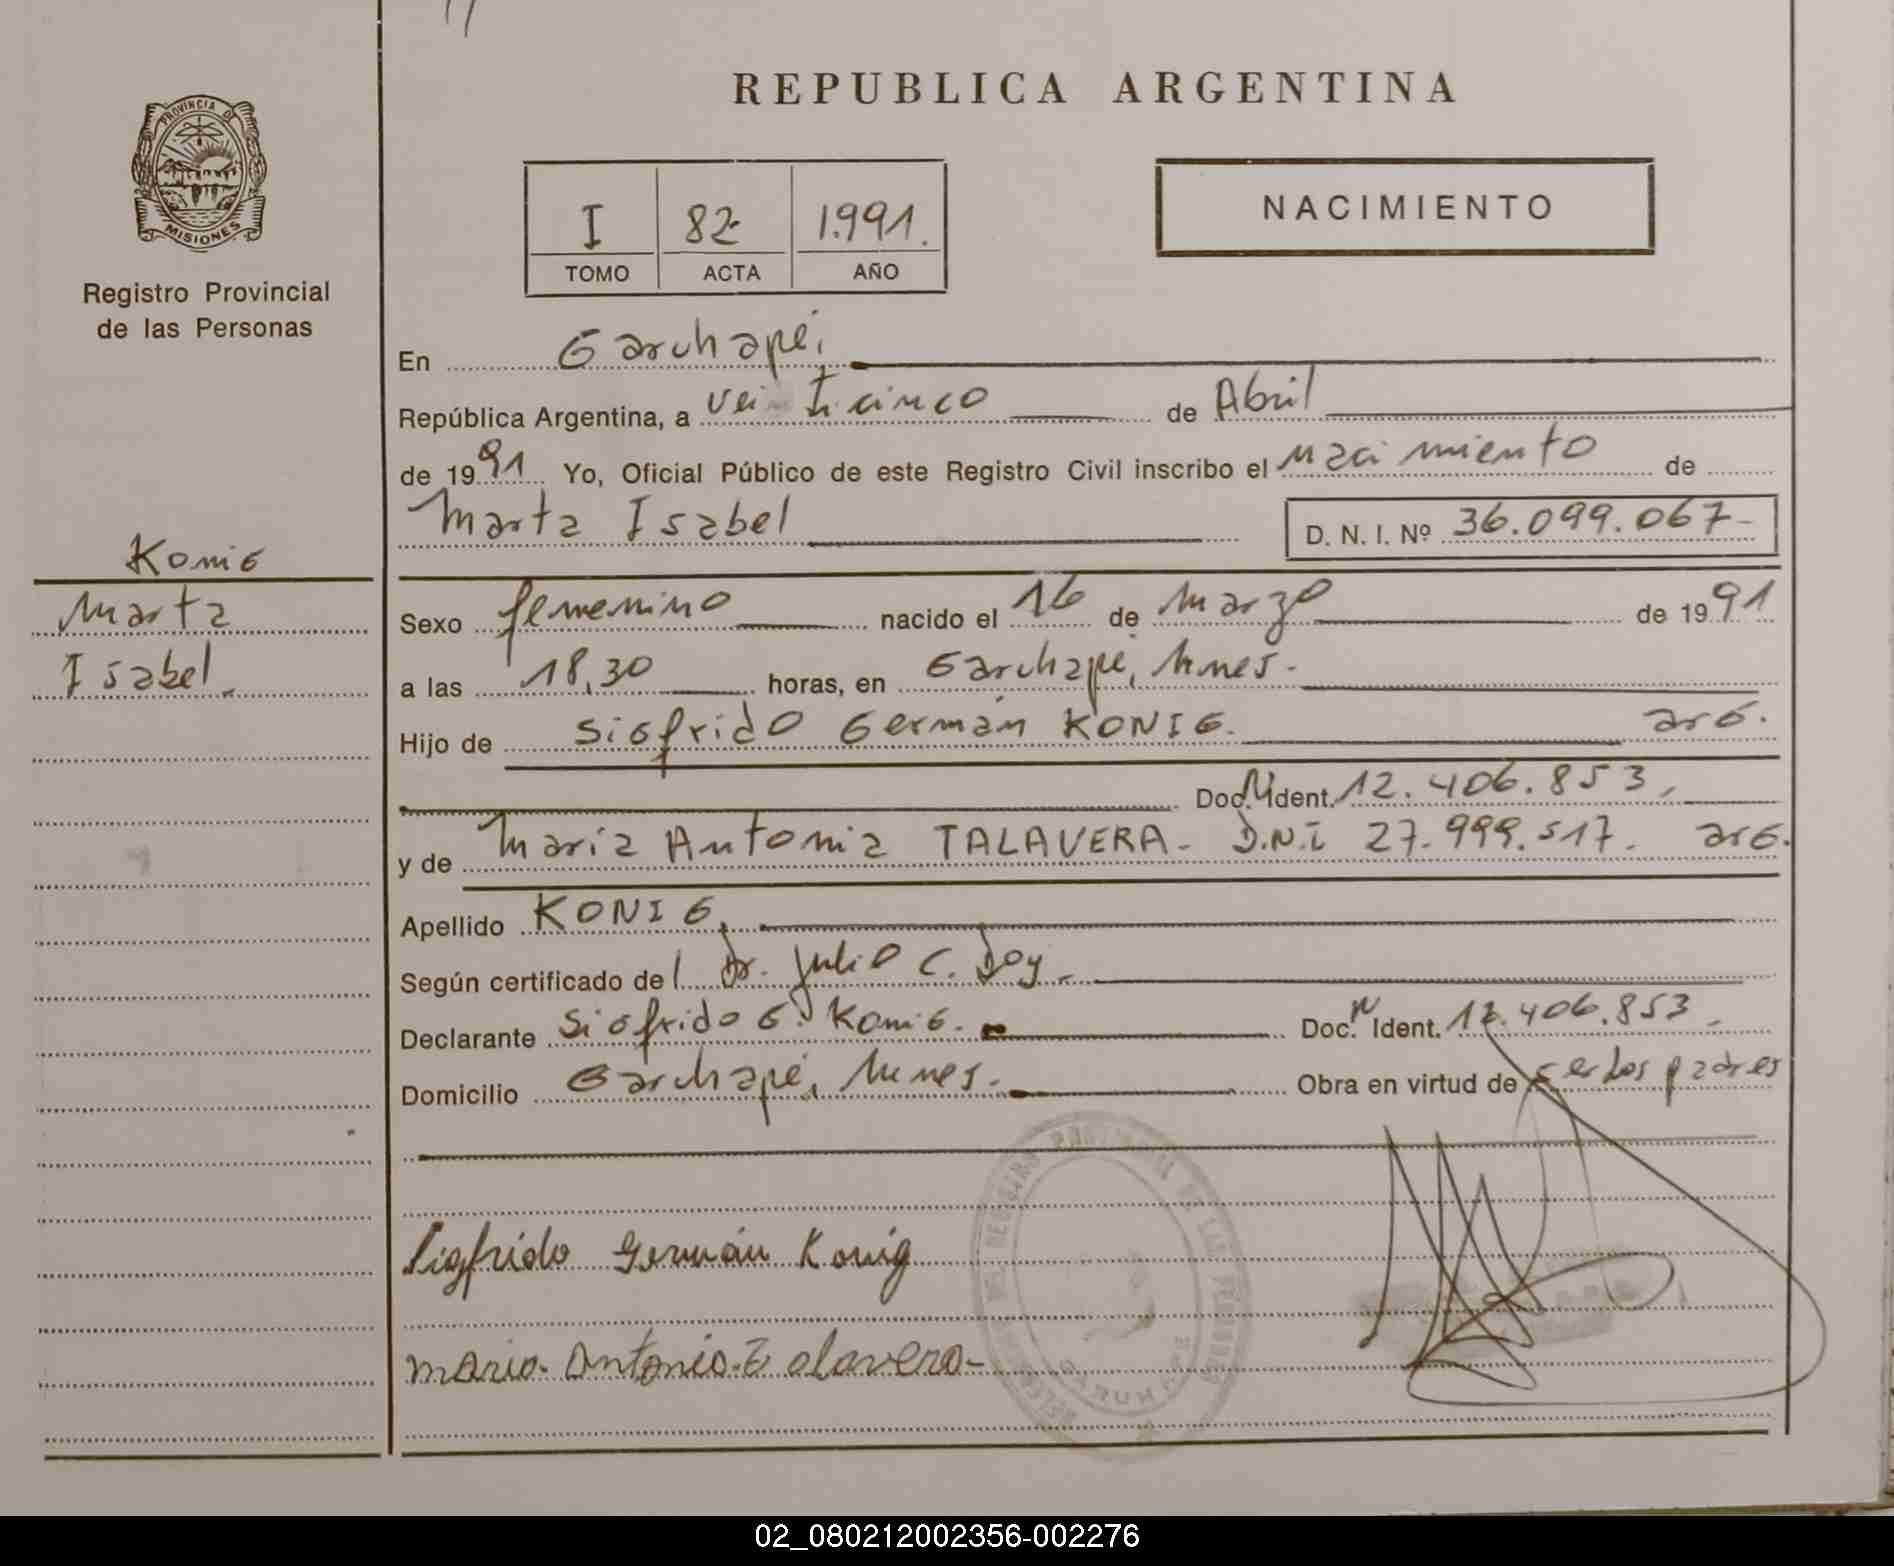 REPUBLICA ARGENTINA
PROVINCIA DE
MISIONES
Registro Provincial
de las Personas
I 82 1.991.
TOMO ACTA AÑO
NACIMIENTO
En Garuhapé,
República Argentina, a Veinticinco de Abril
de 1991 Yo, Oficial Público de este Registro Civil inscribo el nacimiento de
Marta Isabel D. N. I. Nº 36.099.067-
Konig
Marta
Isabel.
Sexo femenino nacido el 16 de Marzo de 1991
a las 18,30 horas, en Garuhapé, Mnes.
Hijo de Sigfrido Germán KONIG. arg.
Doc. N Ident. 12.406.853,
y de María Antonia TALAVERA- D.N.I 27.999.517. arg.
Apellido KONIG,
Según certificado del Dr. Julio C. Doy.
Declarante Sigfrido G. Konig. Doc. N Ident. 12.406.853,
Domicilio Garuhapé, Mnes. Obra en virtud de ser los padres
Sigfrido Germán Konig
Maria Antonia Talavera-
02_080212002356-002276